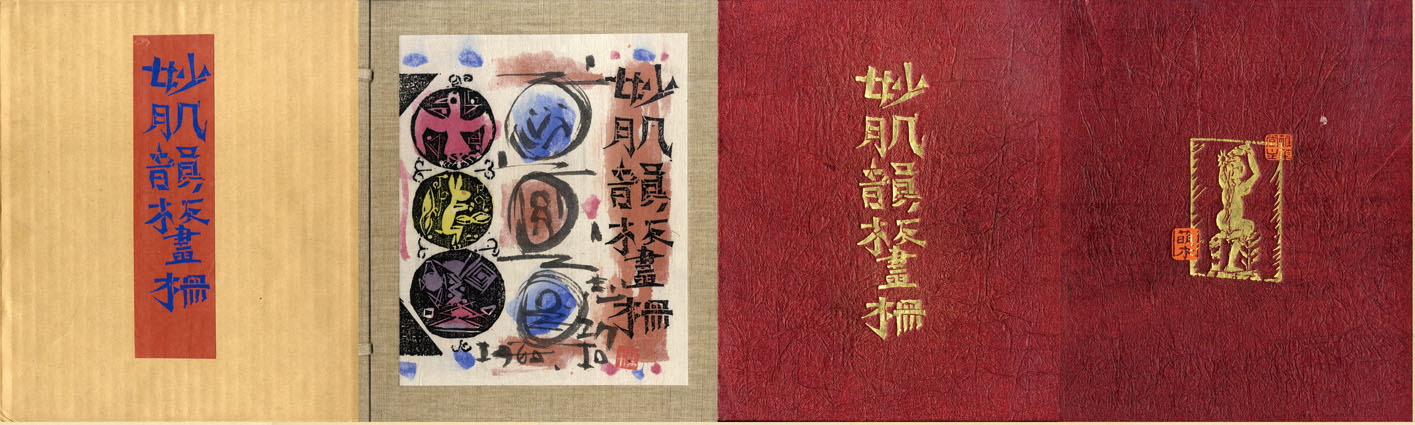 妙肌韻板畫柵
妙肌韻板畫柵
1960
妙肌韻板畫柵